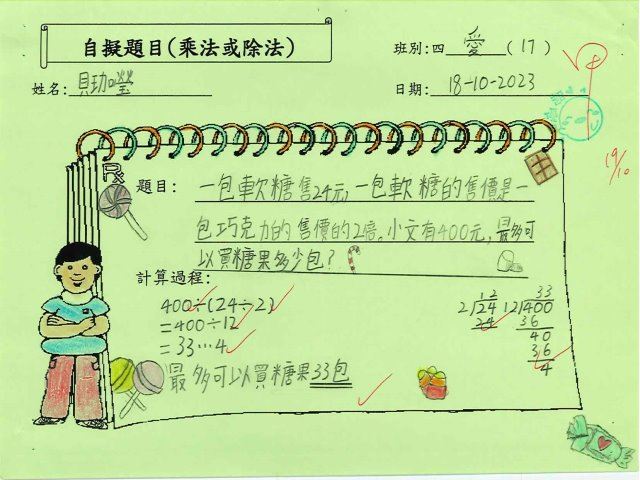 自擬題目(乘法或除法)
班別:四 愛 (17)
姓名:
日期: 18-10-2023
題目: 一包軟糖售24元,一包軟糖的售價是一
包巧克力的售價的2倍。小文有400元,最多可
以買糖果多少包?
計算過程:
400÷(24÷2)
=400÷12
=33…4
最多可以買糖果33包
12
2)24
24
33
12)400
36
40
36
4
19/10